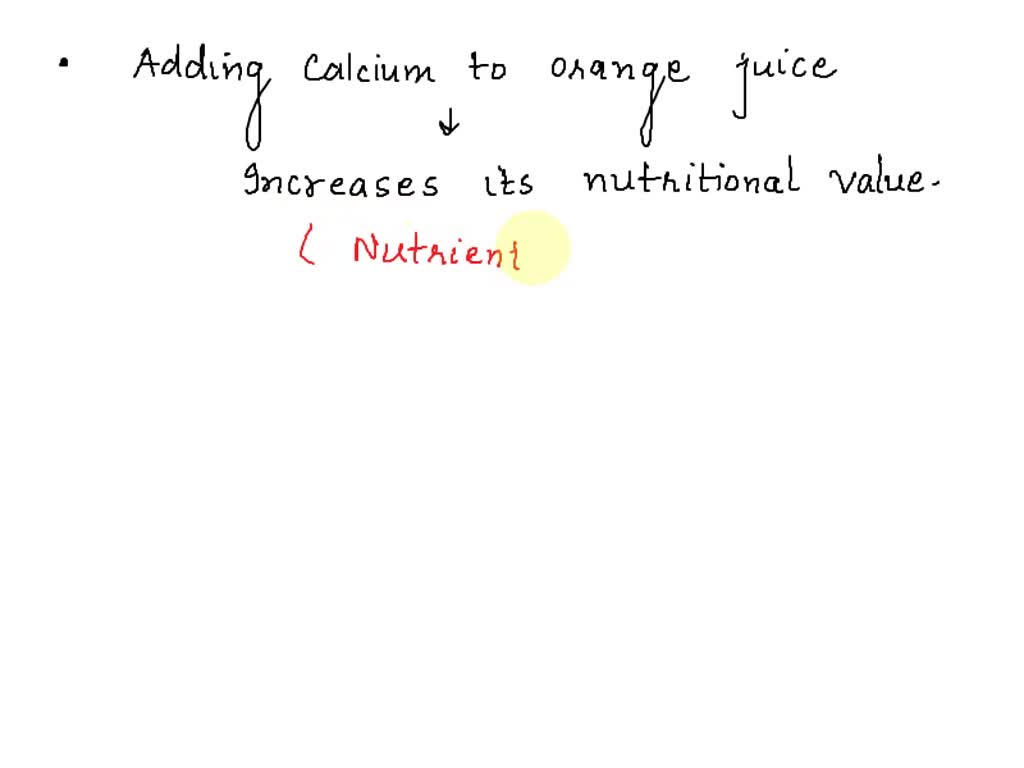 • Adding Calcium to orange juice
↓
Increases its nutritional value.
( Nutrient